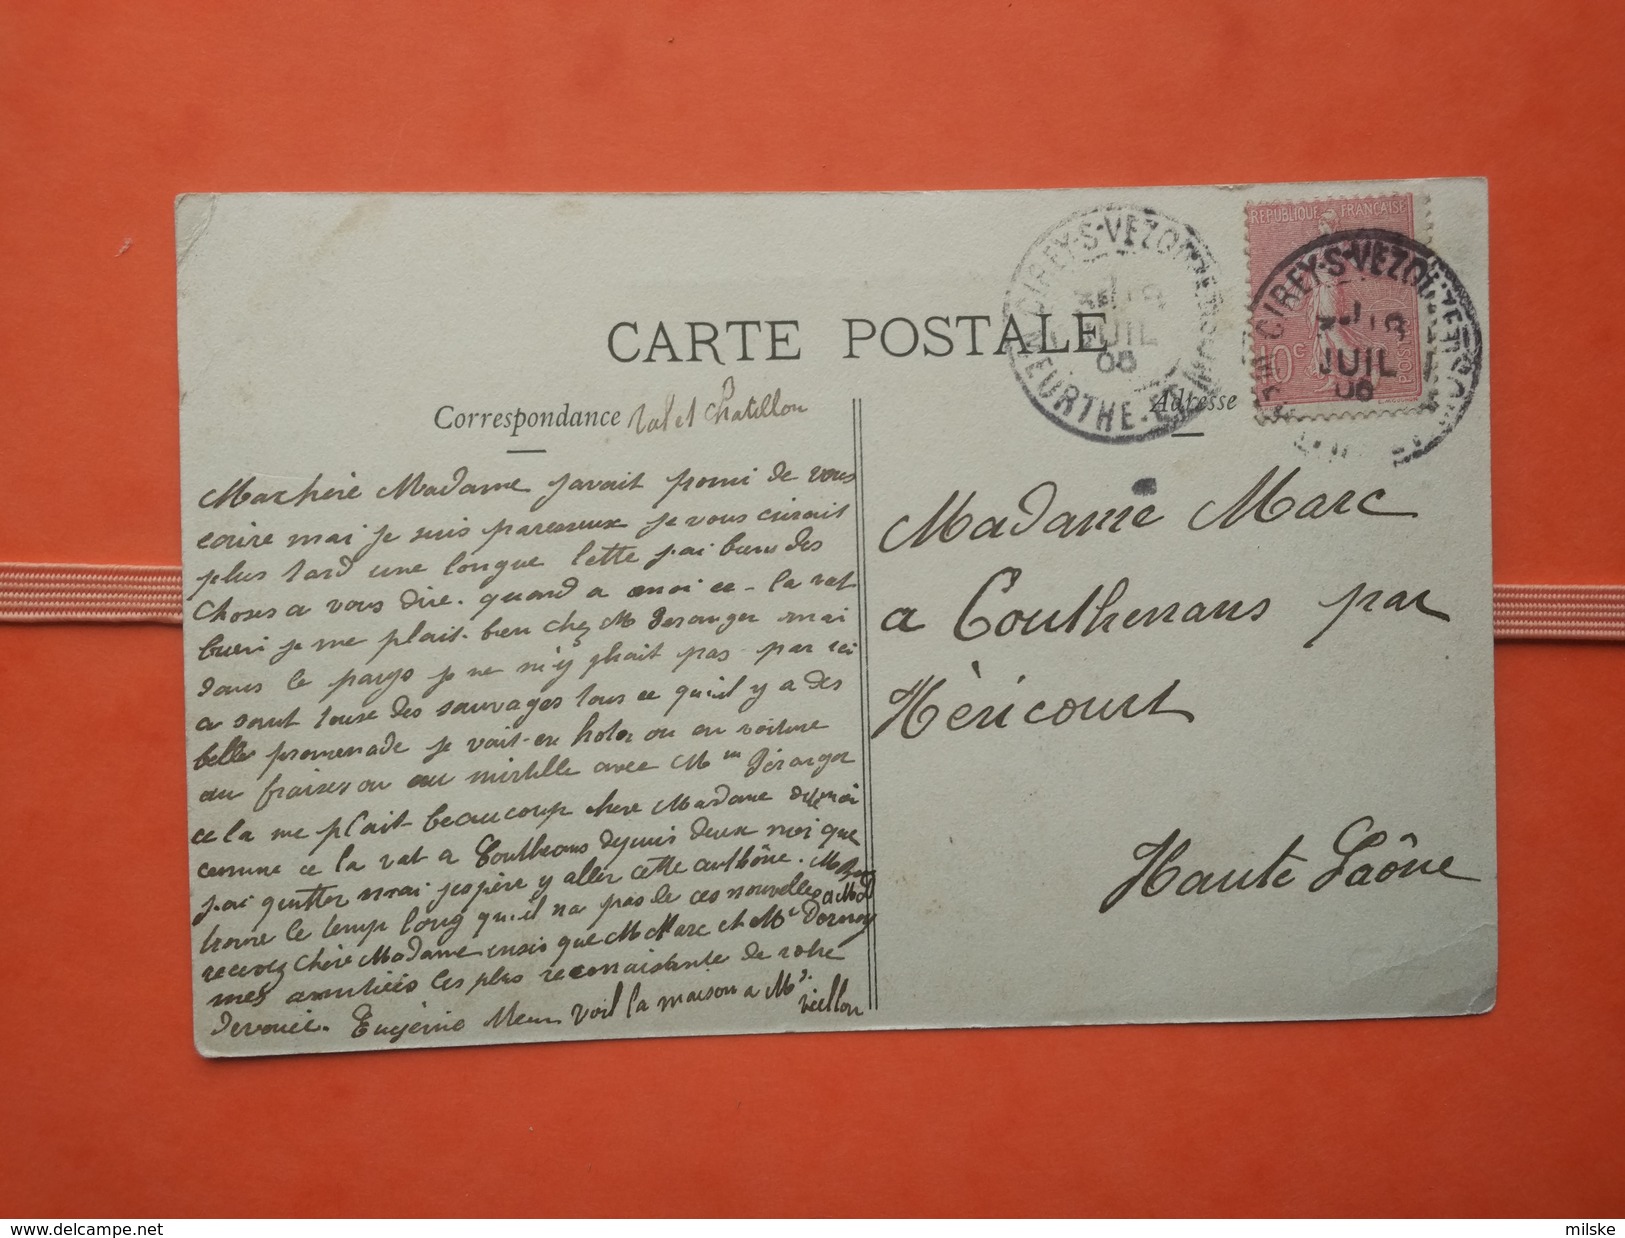 CARTE POSTALE
Correspondance Val et Chatillon
Ma chère Madame javait promi de vous
ecrire mai je suis paresseux je vous ecrirait
plus tard une longue lette j'ai bien des
choses a vous dire. quand a moi ce-la vat
bien je me plait-bien chez M Beranger mai
dans le pays je ne m'y plait pas par ici
a sont tous des sauvages tous ce qu'il y a des
belles promenade je vait-en ou en voiture
au fraises ou au mirtille avec M Béranger
ce la me plait beaucoup chere Madame
comme ce la vat a depuis deux moi que
j'ai quitter mai jespère y aller cette authône.
trouve le temp long qu-il na pas de ces nouvelles
recevez chère Madame insis que M Marc et
mes amitiés les plus reconaisante de votre
devouée. Eugénie voil la maison a Md.
Vieillon
REPUBLIQUE FRANÇAISE
10c
POSTES
CIREY-S-VEZOUZE
JUIL
06
MEURTHE-ET-MOSELLE
CIREY-S-VEZOUZE
JUIL
06
Adresse
Madame Marc
a Couthenans par
Héricourt
Haute Saône
delcampe.net
milske